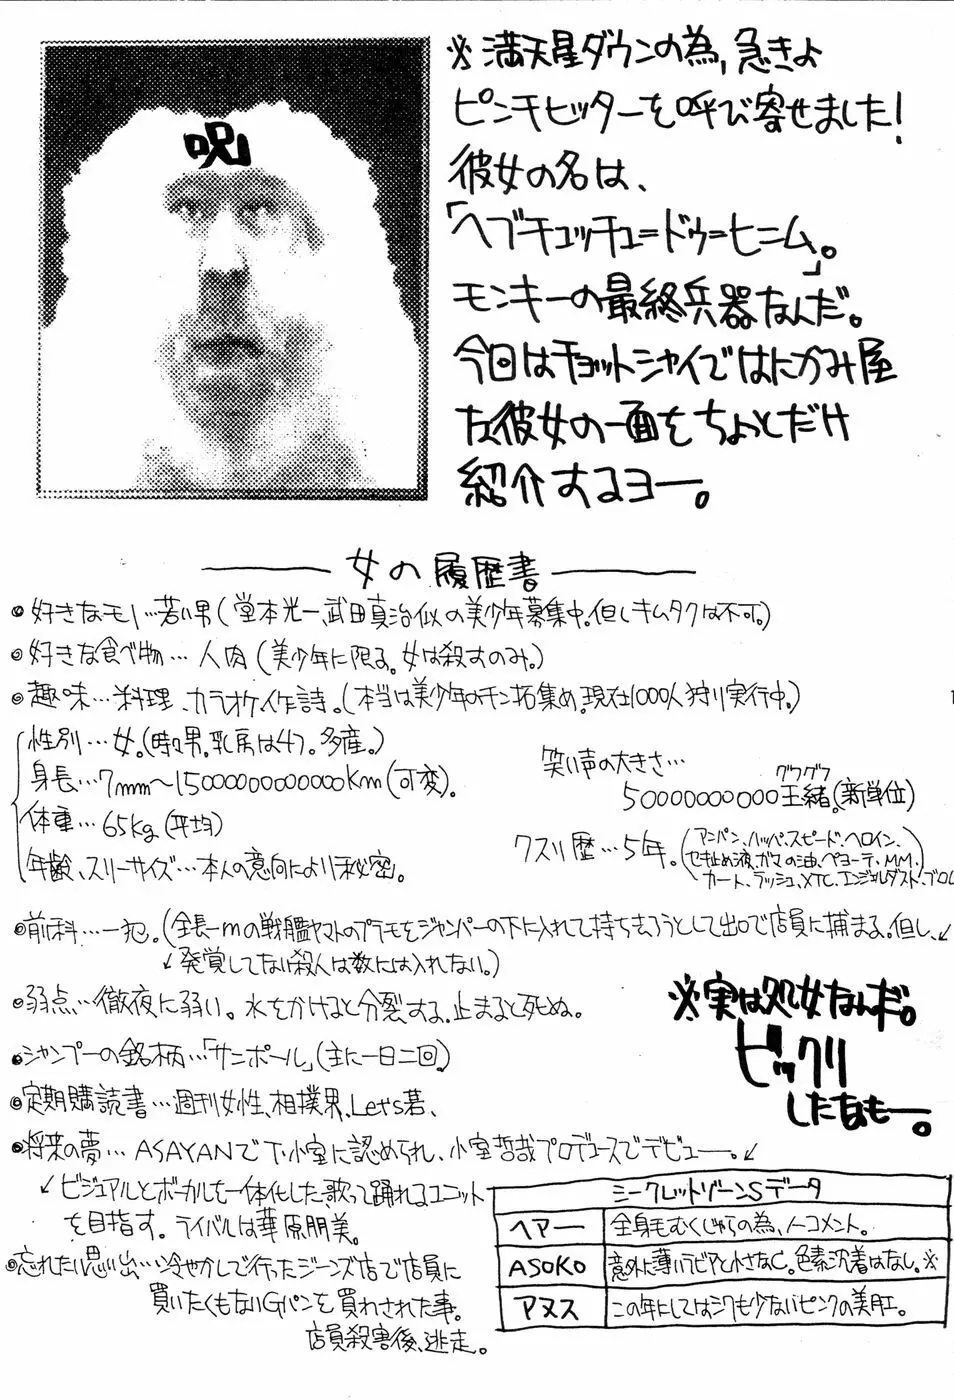 呪
※満天星ダウンの為、急きょ
ピンチヒッターを呼び寄せました!
彼女の名は、
「ヘブチュッチュ=ドゥ=ヒニム」。
モンキーの最終兵器なんだ。
今回はチョットシャイではにかみ屋
な彼女の一面をちょっとだけ
紹介するヨー。
女の履歴書
●好きなモノ…若い男(堂本光一、武田真治似の美少年募集中。但しキムタクは不可。)
●好きな食べ物…人肉(美少年に限る。女は殺すのみ。)
●趣味…料理、カラオケ、作詩。(本当は美少年のチン拓集め。現在1000人狩り実行中。)
性別…女。(時々男。乳房は47。多産。)
身長…7mm〜15000000000000Km(可変)。
体重…65kg(平均)
年齢、スリーサイズ…本人の意向により秘密。
笑い声の大きさ…
グワグワ
50000000000王緒。(新単位)
クスリ歴…5年。(アンパン、ハッパ、スピード、ヘロイン、
セキ止め液、ガマの油、ペヨーテ、MM、
カート、ラッシュ、XTC、エンジェルダスト、ブロ
●前科…一犯。(全長一mの戦艦ヤマトのプラモをジャンパーの下に入れて持ち去ろうとして出口で店員に捕まる。但し、↙
↙発覚してない殺人は数には入れない。)
●弱点…徹夜に弱い。水をかけると分裂する。止まると死ぬ。
●シャンプーの銘柄…「サンポール」(主に一日二回)
●定期購読書…週刊女性、相撲界、Let's碁、
●将来の夢…ASAYANで下小室に認められ、小室哲哉プロデュースでデビュー。↙
↙ビジュアルとボーカルを一体化した、歌って踊れるユニット
を目指す。ライバルは華原朋美。
●忘れたい思い出…冷やかしで行ったジーンズ店で店員に
買いたくもないGパンを買わされた事。
店員殺害後、逃走。
※実は処女なんだ。
ビックリ
したなもー。
シークレットゾーンSデータ
ヘアー 全身毛むくじゃらの為、ノーコメント。
ASOKO 意外に薄いラビアと小さなC。色素沈着はなし。※
アヌス この年にしてはシワも少ないピンクの美肛。